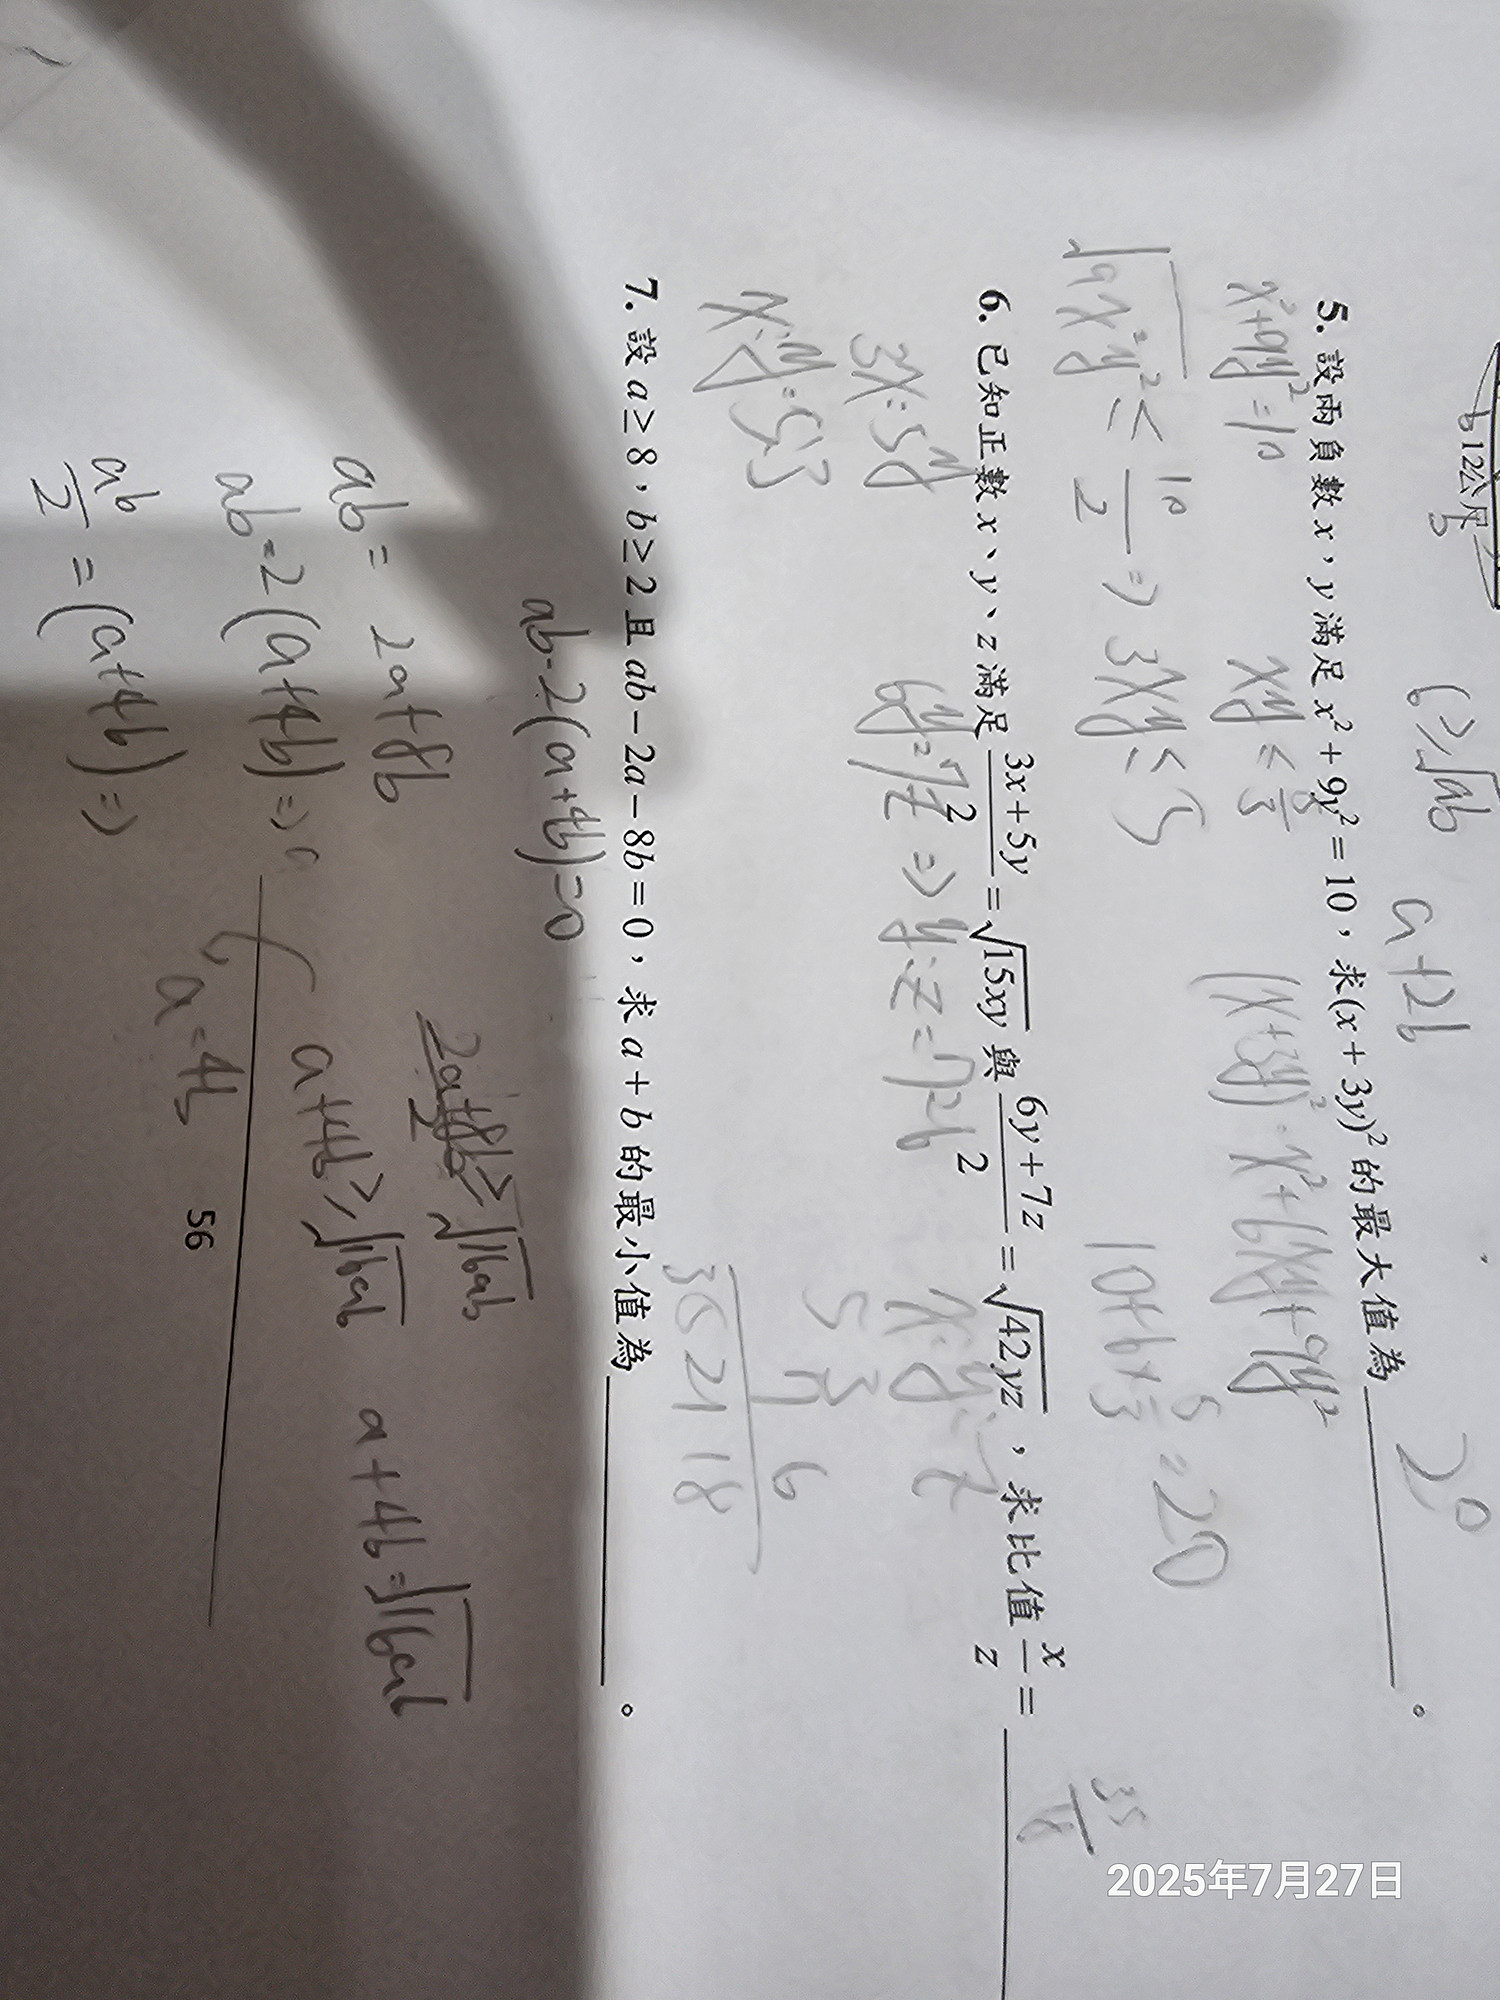 12公尺
6≥√ab
a+2b
5. 設兩負數 x，y 滿足 x² + 9y² = 10，求(x + 3y)² 的最大值為________。
20
x²+9y²=10
xy ≤ 5/3
(x+3y)²=x²+6xy+9y²
√9x²y² ≤ 10/2 ⇒ 3xy ≤ 5
10+6×5/3=20
6. 已知正數 x、y、z 滿足 (3x+5y)/2 = √15xy 與 (6y+7z)/2 = √42yz，求比值 x/z = ________
35/18
3x=5y
6y=7z ⇒ y:z=7:6
x:y:z
x:y=5:3
5 3
7 6
35 21 18
7. 設 a ≥ 8，b ≥ 2 且 ab − 2a − 8b = 0，求 a + b 的最小值為________。
ab-2(a+4b)=0
ab= 2a+8b
ab=2(a+4b)⇒
ab/2 = (a+4b)⇒
a+4b≥√16ab
a+4b=√16ab
a=4b
56
2025年7月27日